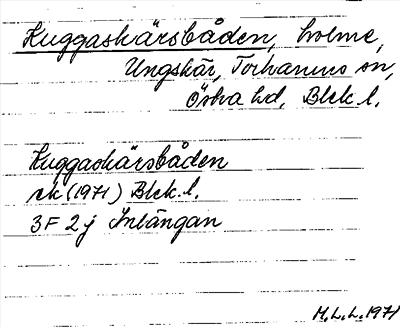 Kuggaskärsbåden, holme,
Ungskär, Torhamns sn,
Östra hd, Blek. l.
Kuggaskärsbåden
ek (1971) Blek. l.
3F 2j Inlängan
M.L.L. 1971